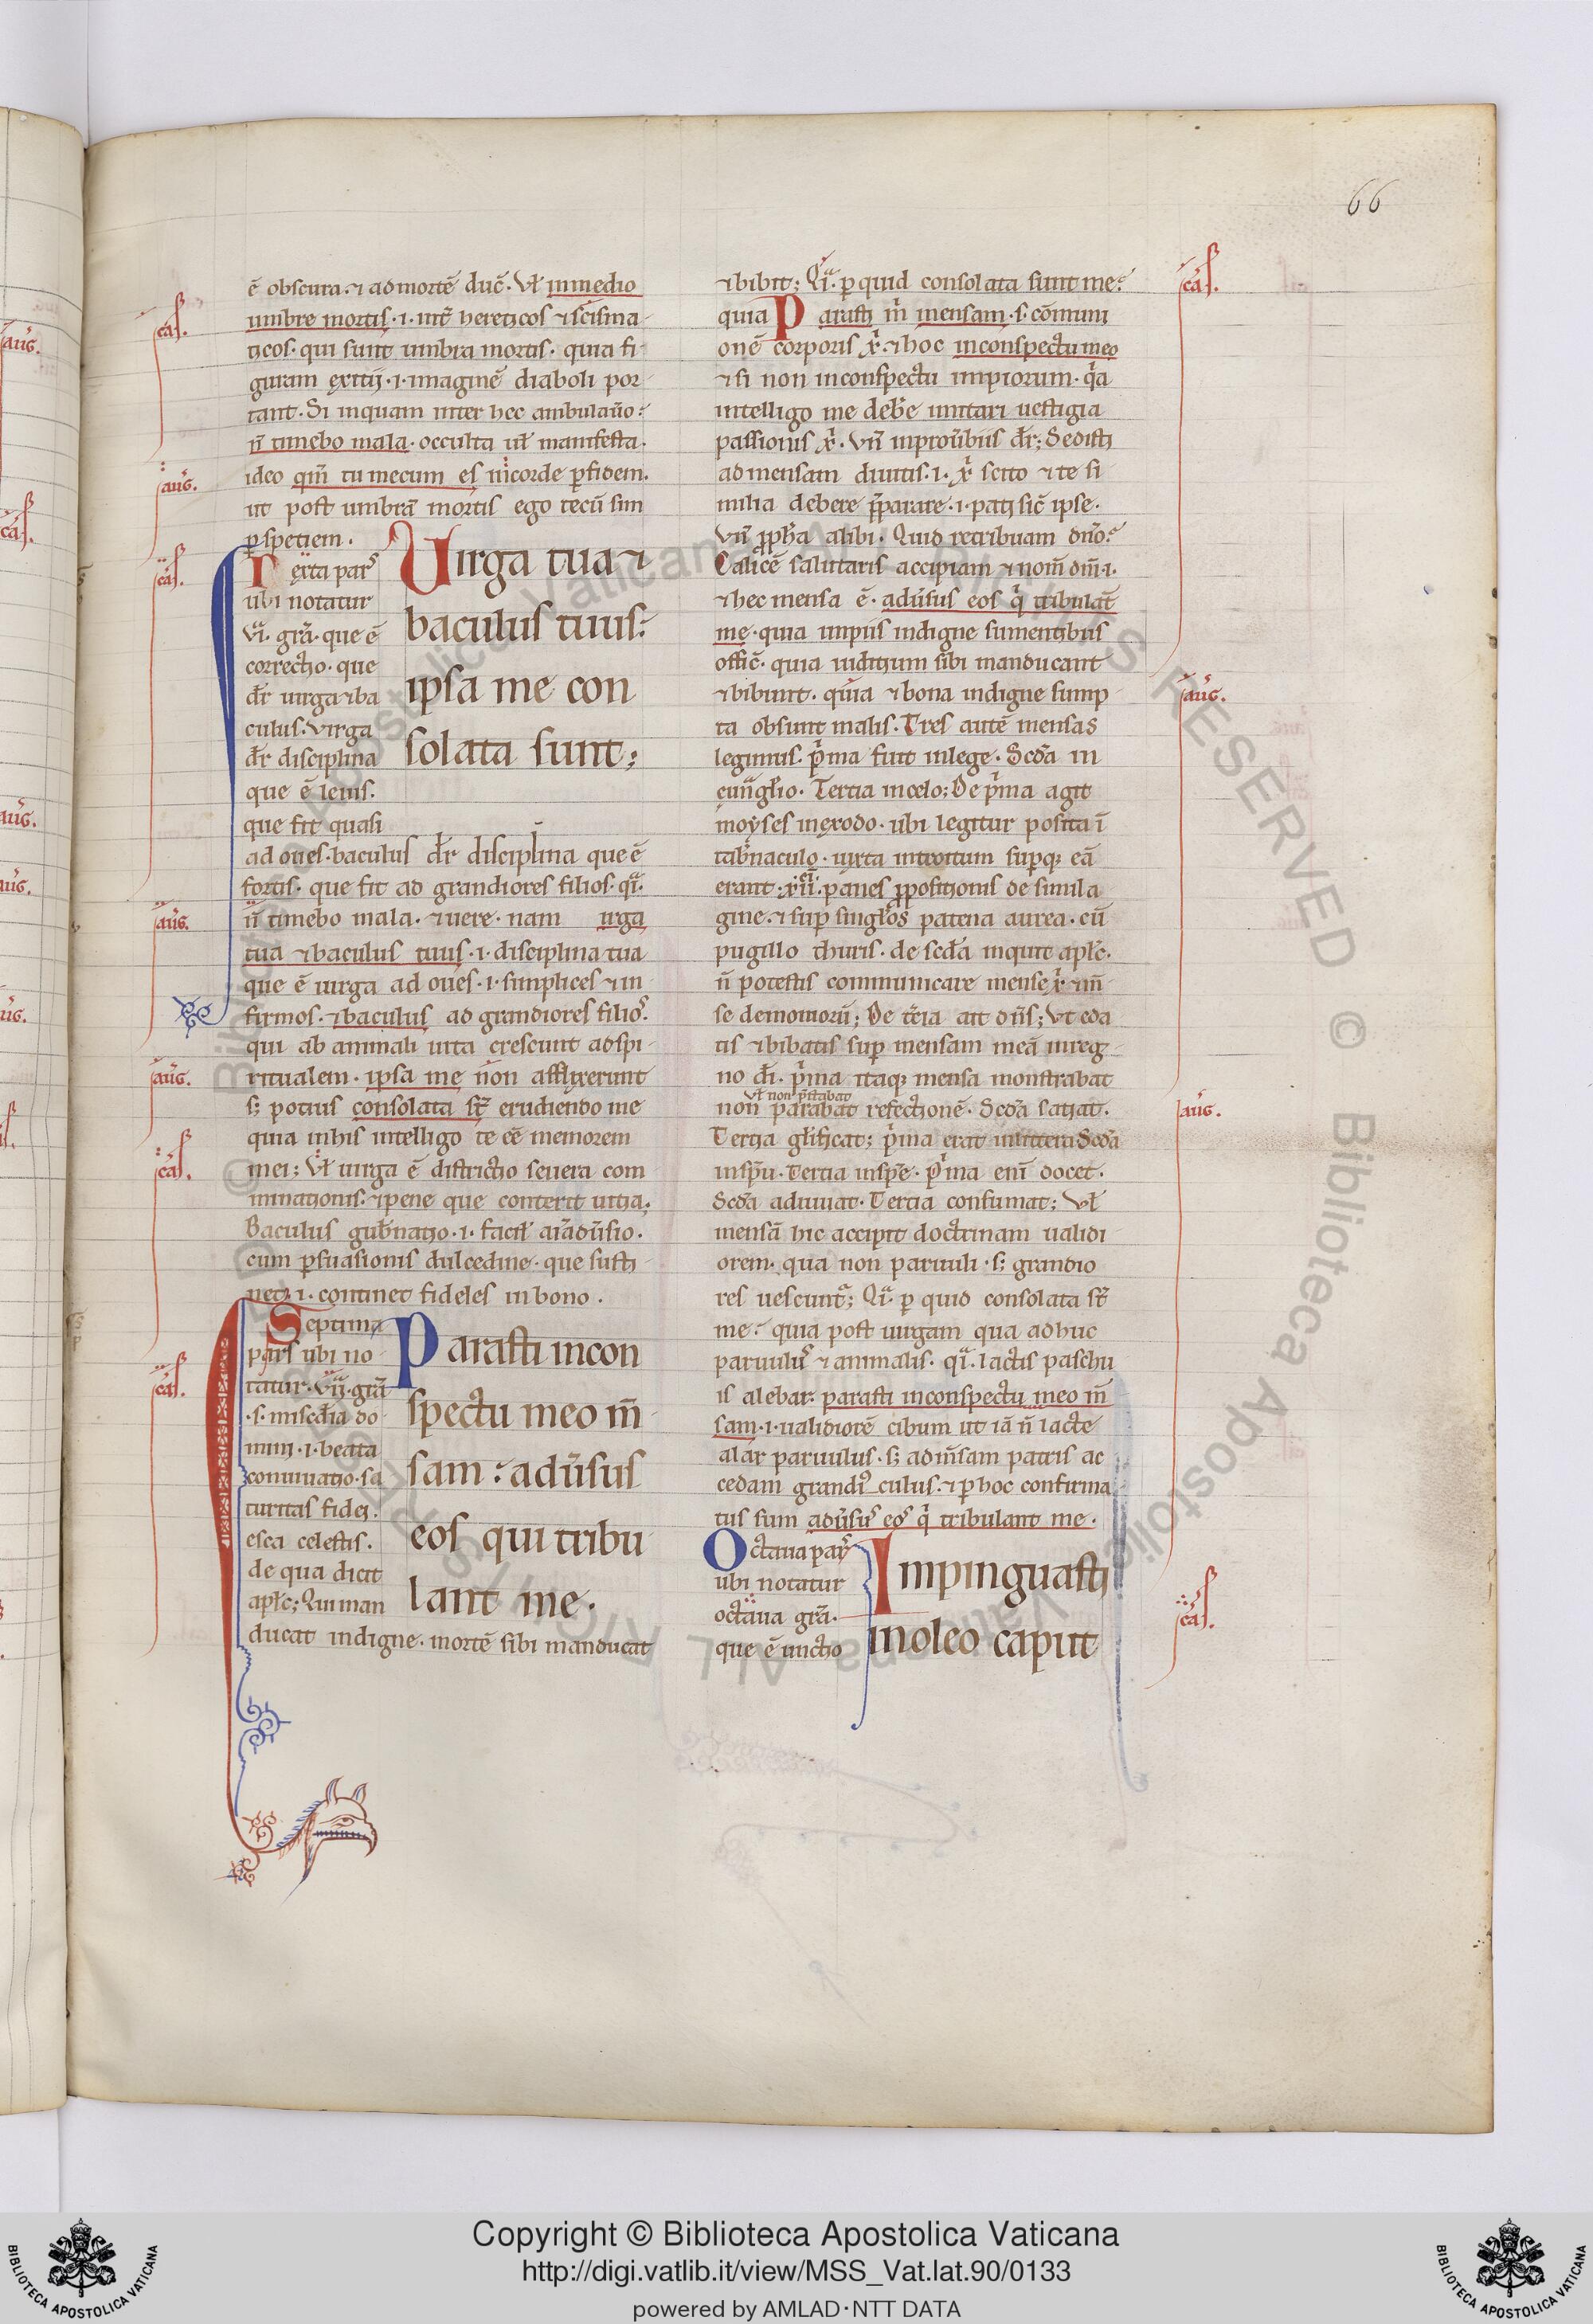 66
ē obscura. ⁊ ad mortē duc̄. Ul̄ in medio
umbre mortis .i. int̄ hereticos ⁊ scisma
ticos. qui sunt umbra mortis. quia fi
guram exitij .i. imaginē diaboli por
tant. Si inquam inter hec ambulau̇o:
n̄ timebo mala. occulta ul̄ manifesta.
ideo qm̄ tu mecum es in corde ꝑ fidem.
ut post umbrā mortis ego tecū sim
ꝑ speciem.
exta pars
ubi notatur
vi. grā. que ē
correctio. que
dr̄ uirga ⁊ ba
culus. virga
dr̄ disciplina
que ē leuis.
que fit quasi
Uirga tua ⁊
baculus tuus:
ipsa me con
solata sunt;
ad oues. baculus dr̄ disciplina que ē
fortis. que fit ad grandiores filios. qͥ.
n̄ timebo mala. ⁊ uere. nam uirga
tua ⁊ baculus tuus .i. disciplina tua
que ē uirga ad oues .i. simplices ⁊ in
firmos. ⁊ baculus ad grandiores filios.
qui ab animali uita crescunt ad spi
ritualem. ipsa me non afflixerunt
s; potius consolata st̄ erudiendo me
quia in his intelligo te eē memorem
mei; Ul̄ uirga ē districtio seuera com
minationis. ⁊ pene que conterit uitia.
Baculus gub̄natio .i.
cum ꝑsuasionis dulcedine. que susti
net .i. continet fideles in bono.
Septima
pars ubi no
tatur. vii. grā
.s. mis̄c̄dia do
mini .i. beata
conuiuatio. sa
turitas fidei.
esca celestis.
de qua dicit
apl̄c; Qui man
Parasti in con
spectu meo m̄
sam: adūsus
eos qui tribu
lant me.
ducat indigne. mortē sibi manducat
⁊ bibit; Qͥ. ꝑ quid consolata sunt me:
quia Parasti m̄ mensam .s. cōmuni
onē corporis xͥ. ⁊ hoc in conspectu meo
⁊ si non in conspectu impiorum. qͣa
intelligo me deb̄e imitari uestigia
passionis xͥ. Vn̄ in prouerbiis dr̄; Sedisti
ad mensam diuitis .i. xͥ scito ⁊ te si
milia debere p̄parare .i. pati sic̄ ipse.
Vn̄ ꝓph̄a alibi. Quid retribuam dn̄o:
Calicē salutaris accipiam ⁊ nom̄ dn̄i.
⁊ hec mensa ē. adūsus eos qͥ tribulāt
me. quia impiis indigne sumentibus
offic̄. quia iuditium sibi manducant
⁊ bibunt. quia ⁊ bona indigne sump
ta obsunt malis. Tres autē mensas
legimus. pͥma fuit in lege. Scd̄a in
euāgl̄io. Tertia in celo; De pͥma agit
moyses in exodo. ubi legitur posita ī
tab̄naculo. iuxta introitum sup̄q; eā
erant. xii. panes ꝓpositionis de simila
gine. ⁊ sup̄ singl̄os patena aurea. cū
pugillo thuris. de scd̄a inquit apl̄c.
n̄ potestis communicare mense xͥ ⁊ m̄
se demoniorū; De t̄cia ait dn̄s; Vt eda
tis ⁊ bibatis sup̄ mensam meā in reg
no dī. pͥma itaq; mensa monstrabat
ul̄ non p̄stabat
non parabat refectionē. Scd̄a satiat.
Tertia gl̄ificat; pͥma erat in littera Scd̄a
in sp̄u. Tertia in spē. Pͥma enī docet.
Scd̄a adiuuat. Tertia consumat; Ul̄
mensā hic accipit doctrinam ualidi
orem. qua non paruuli. s; grandio
res uescunt̄; Qͥ. ꝑ quid consolata st̄
me: quia post uirgam qua adhuc
paruulus ⁊ animalis. qͥ. lactis paschu
is alebar. parasti in conspectu meo m̄
sam .i. ualidiorē cibum ut iā n̄ lacte
alar paruulus. s; ad m̄sam patris ac
cedam grandiculus. ⁊ ꝑ hoc confirma
tus sum adūsus eos qͥ tribulant me.
Octaua pars
ubi notatur
octaua grā.
que ē unctio
Impinguasti
in oleo caput
cas.
aug.
cas.
aug.
aug.
cas.
cas.
cas.
aug.
aug.
cas.
Copyright © Biblioteca Apostolica Vaticana
http://digi.vatlib.it/view/MSS_Vat.lat.90/0133
powered by AMLAD·NTT DATA
BIBLIOTECA APOSTOLICA VATICANA
BIBLIOTECA APOSTOLICA VATICANA